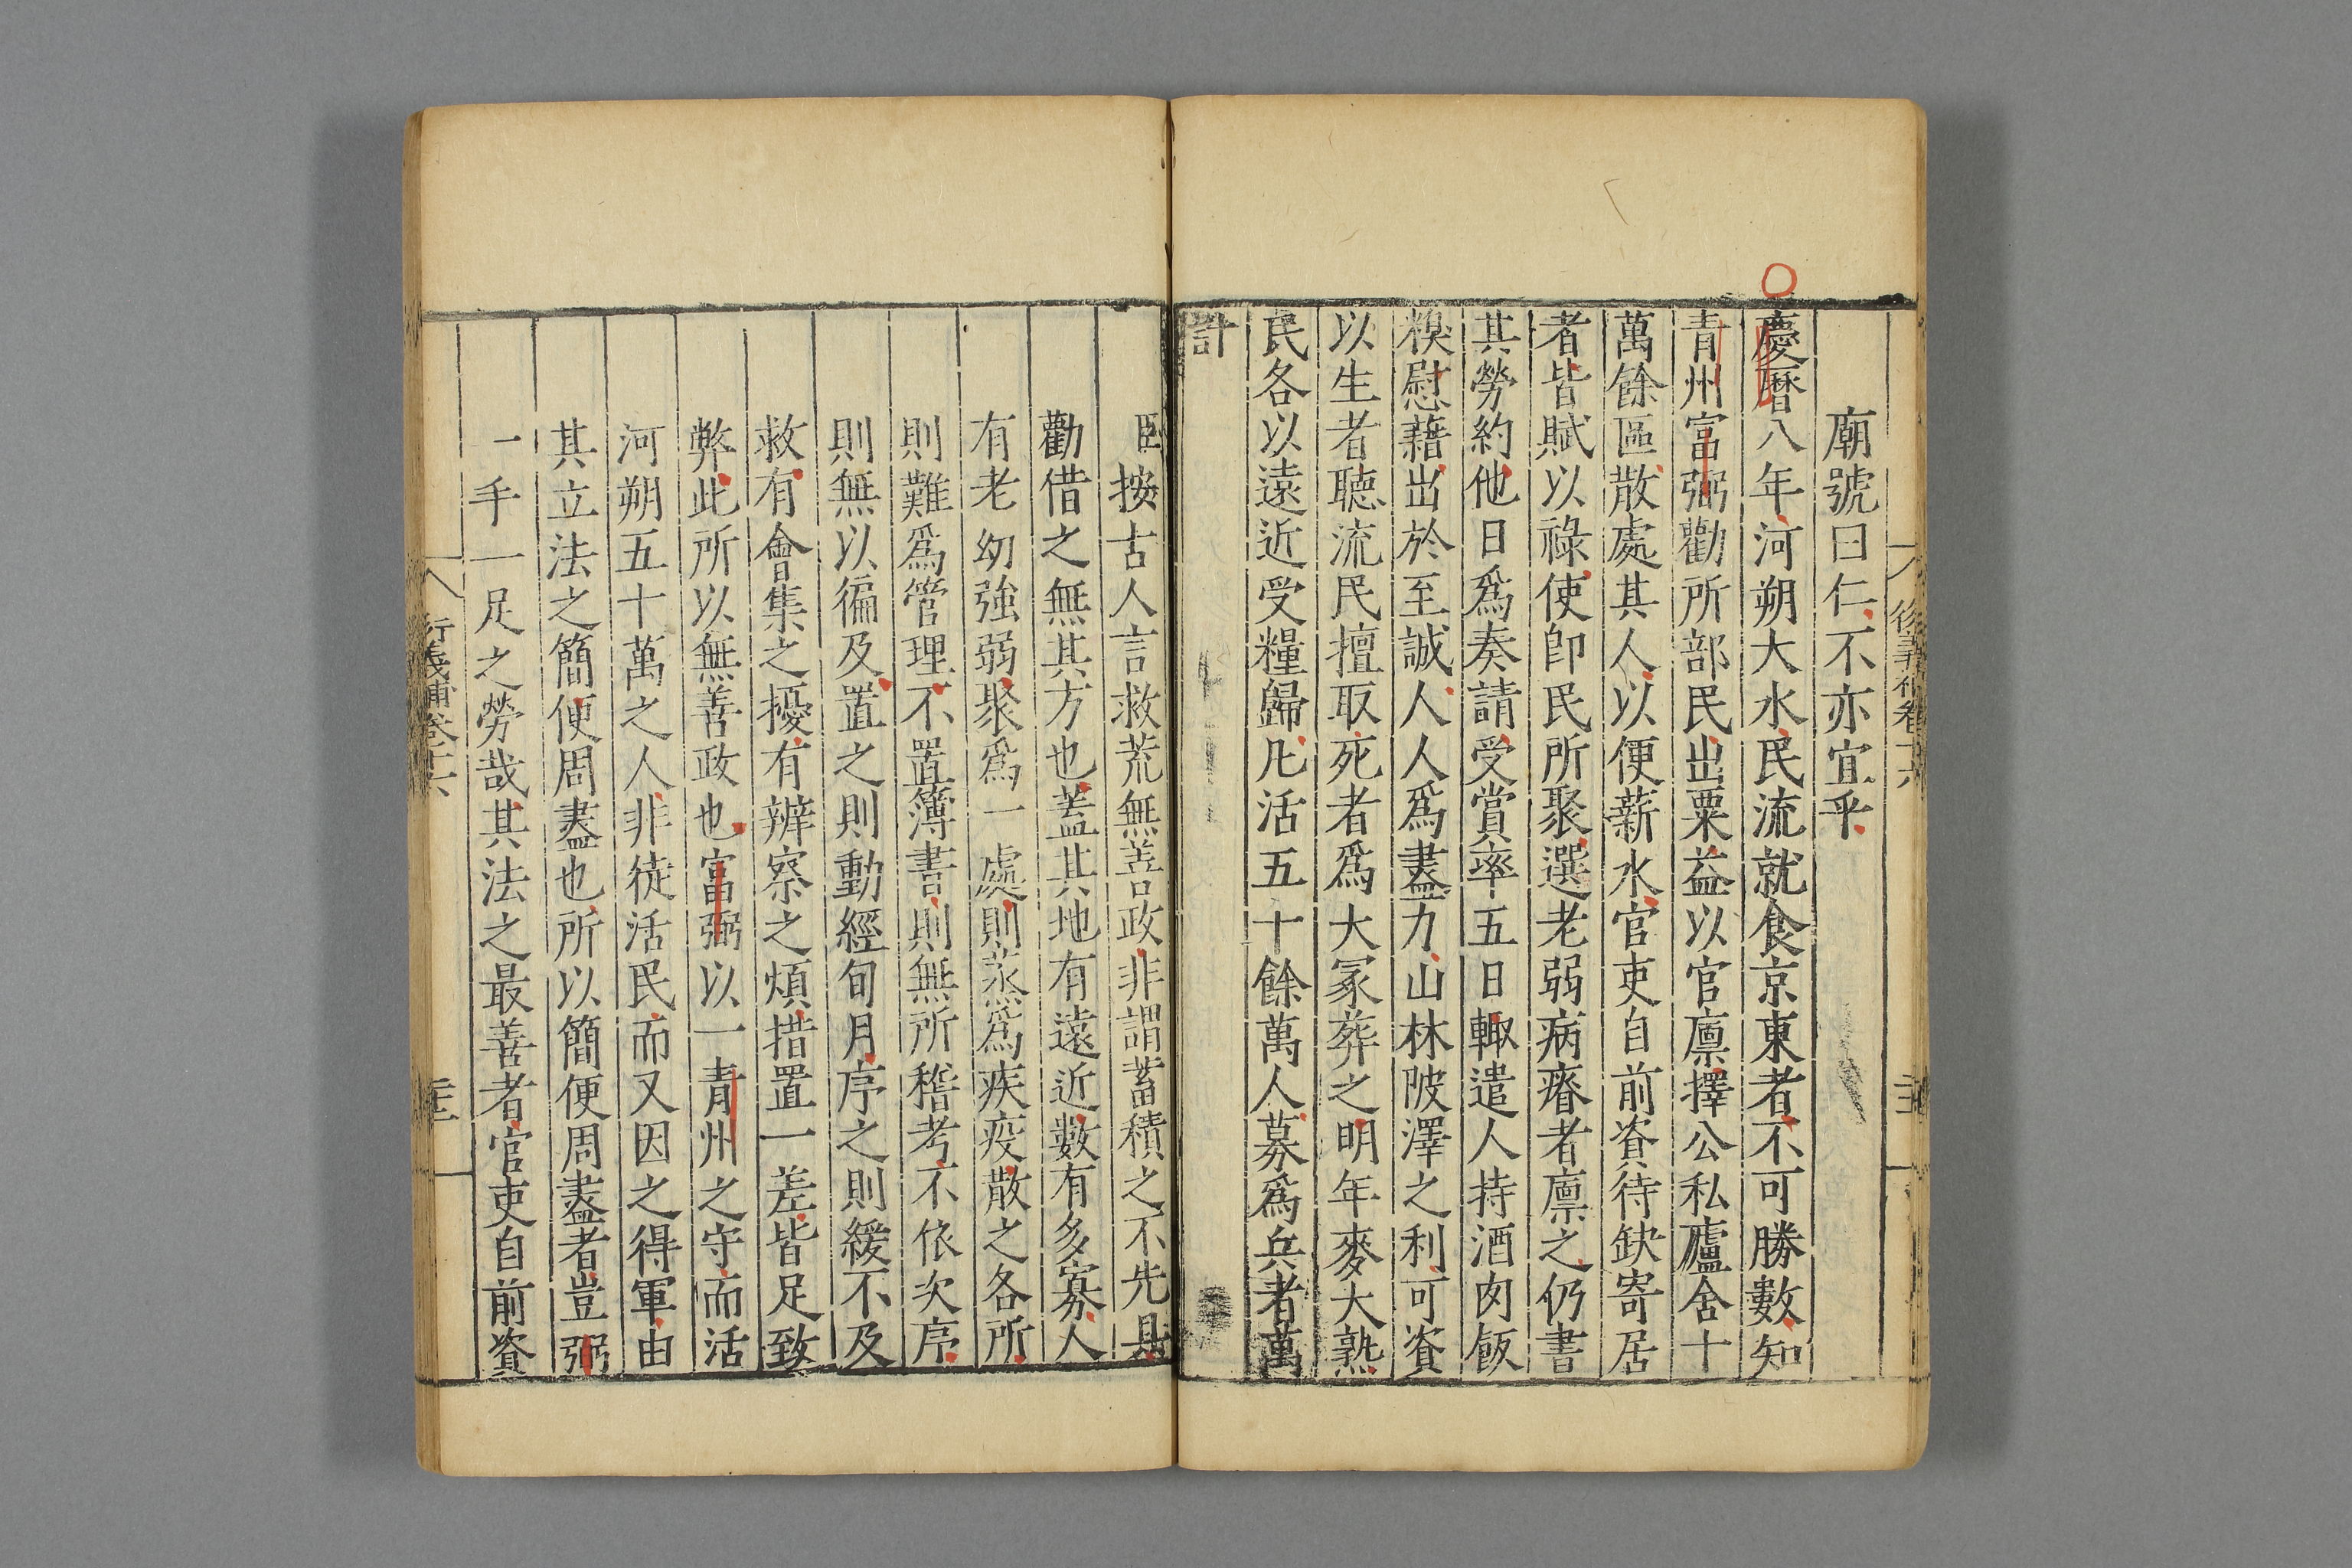 廟號曰仁不亦宜乎
慶曆八年河朔大水民流就食京東者不可勝數知
青州富弼勸所部民出粟益以官廩擇公私廬舍十
萬餘區散處其人以便薪水官吏自前資待缺寄居
者皆賦以祿使卽民所聚選老弱病瘠者廩之仍書
其勞約他日爲奏請受賞率五日輒遣人持酒肉飯
糗慰藉出於至誠人人爲盡力山林陂澤之利可資
以生者聽流民擅取死者爲大冢葬之明年麥大熟
民各以遠近受糧歸凡活五十餘萬人募爲兵者萬
計
臣按古人言救荒無善政非謂蓄積之不先具
勸借之無其方也蓋其地有遠近數有多寡人
有老幼強弱聚爲一處則蒸爲疾疫散之各所
則難爲管理不置簿書則無所稽考不依次序
則無以徧及置之則動經旬月序之則緩不及
救有會集之擾有辨察之煩措置一差皆足致
弊此所以無善政也富弼以一青州之守而活
河朔五十萬之人非徒活民而又因之得軍由
其立法之簡便周盡也所以簡便周盡者豈弼
一手一足之勞哉其法之最善者官吏自前資
衍義補卷十六